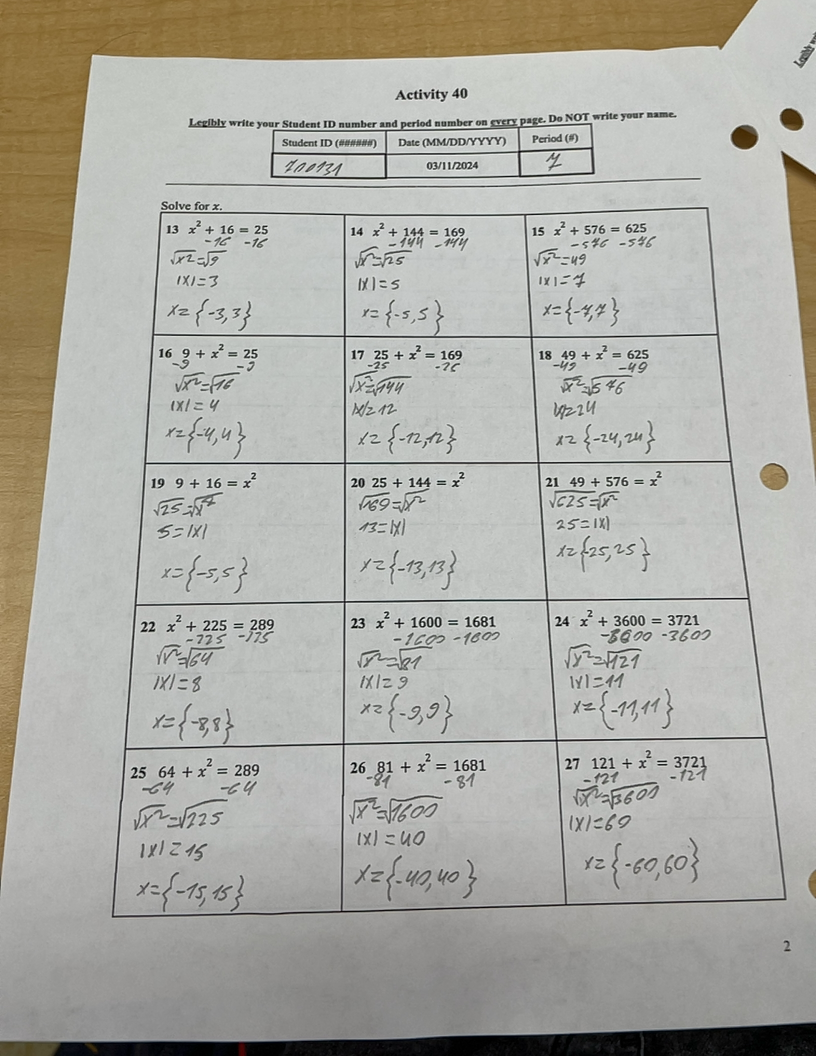 Activity 40
Legibly write your Student ID number and period number on every page. Do NOT write your name.
Student ID (######) Date (MM/DD/YYYY) Period (#)
03/11/2024 7
Solve for x.
13 x² + 16 = 25
-16 -16
√x2=√9
|x|=3
x={-3,3}
14 x² + 144 = 169
-144 -144
√x²=√25
|x|=5
x={-5,5}
15 x² + 576 = 625
-576 -576
√x²=49
|x|=7
x={-7,7}
16 9 + x² = 25
-9 -9
√x²=√16
|x|=4
x={-4,4}
17 25 + x² = 169
-25 -25
√x²=√144
|x|=12
x={-12,12}
18 49 + x² = 625
-49 -49
√x²=√576
=24
x={-24,24}
19 9 + 16 = x²
√25=√x²
5=|x|
x={-5,5}
20 25 + 144 = x²
√169=√x²
13=|x|
x={-13,13}
21 49 + 576 = x²
√625=√x²
25=|x|
x={-25,25}
22 x² + 225 = 289
-225
√x²=√64
|x|=8
x={-8,8}
23 x² + 1600 = 1681
-1600 -1600
√x²=√81
|x|=9
x={-9,9}
24 x² + 3600 = 3721
-3600 -3600
√x²=√121
|x|=11
x={-11,11}
25 64 + x² = 289
-64 -64
√x²=√225
|x|=15
x={-15,15}
26 81 + x² = 1681
-81 -81
√x²=√1600
|x|=40
x={-40,40}
27 121 + x² = 3721
-121 -121
√x²=√3600
|x|=60
x={-60,60}
2